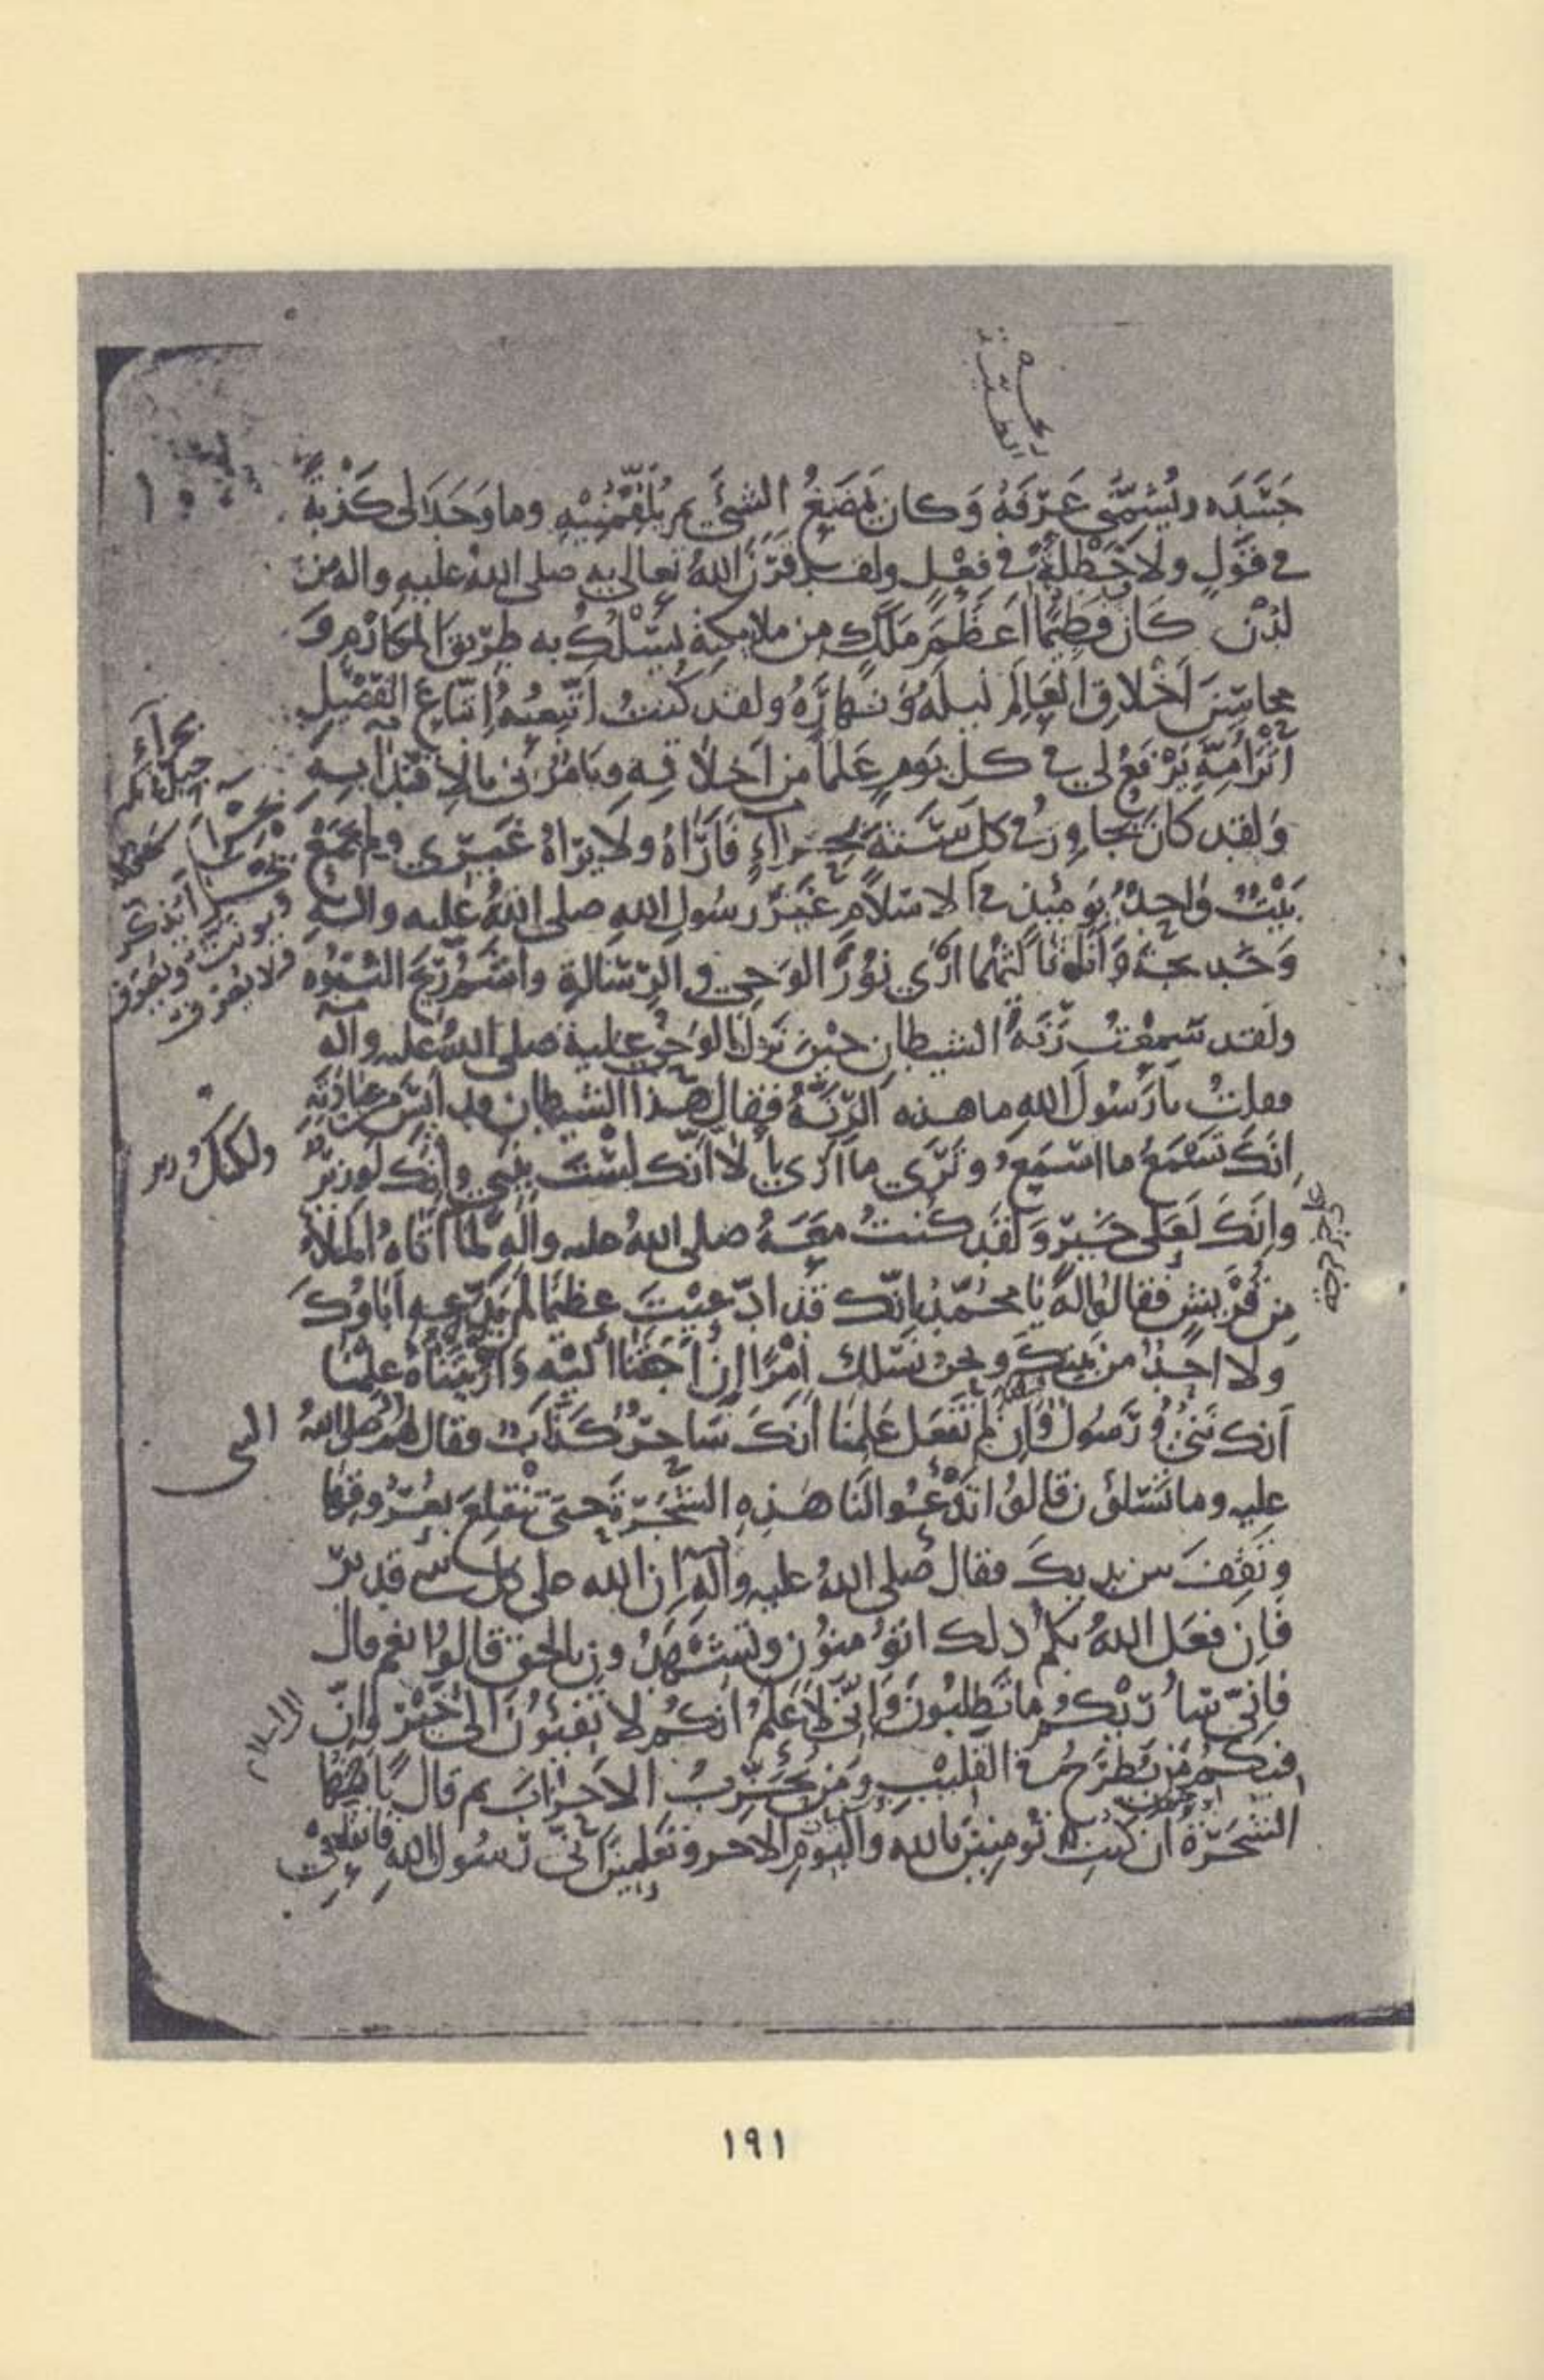 جَسَدَه ويُشِمُّني عَرْفَهُ وَكان يَمضَغُ الشيَّ ثم يُلَقِّمُنِيْهِ وما وَجَدَ لى كَذْبَةً
في قَوْلٍ ولا خَطْلَةً في فِعْلٍ ولقد قَرَنَ اللهُ تعالى به صلى اللهُ عليه واله من
لَدُنْ كَانَ فَطِيْمًا اَعْظَمَ مَلَكٍ من ملايكتِهِ يَسْلُكُ به طريقَ المكارمِ وَ
محاسِنَ اَخْلاقِ العَالَمِ ليلَهُ وَنهارَهُ ولقد كُنتُ اَتَّبِعُهُ اِتباعَ الفَصِيْلِ
اَثَرَ اُمِّهِ يَرْفَعُ لي في كل يَومٍ عَلَمًا من اَخلاقِهِ ويَامُرُني بالاِقتدَا بِهِ
وَلقد كَانَ يُجاوِرُ في كل سَنَةٍ بحِرَاءٍ فَاَرَاهُ ولا يَرَاهُ غَيْري ولم يَجْمَعْ
بَيْتٌ وَاحِدٌ يَومَئِذٍ في الاسلامِ غيرَ رسُولِ اللهِ صلى اللهُ عليه والهِ
وَخديجةَ وَاَنَا ثالثُهما اَرَى نُورَ الوَحيِ والرِّسَالةِ واَشُمُّ رِيحَ النُّبُوةِ
ولَقد سَمِعْتُ رَنَّةَ الشيطانِ حِيْنَ نَزَلَ الوَحْيُ عليهِ صلى اللهُ عليه وآله
فقلتُ يا رَسُولَ اللهِ ما هذه الرَّنَّةُ فقال هَذا الشيطان قد اَيِسَ من عبادتِهِ
اِنكَ تَسْمَعُ ما اسْمَعُ وتَرَى ما اَرَى اِلا اَنَّك لَسْتَ بِنَبِيٍ وانك لَوزيرٌ
واِنكَ لَعَلى خَيْرٍ وَلَقد كنتُ معَهُ صلى اللهُ عليه وآلهِ لَمَّا اَتَاهُ المَلأُ
من قُريشٍ فقالوا لهُ يا محمّدُ اِنّك قد ادَّعَيْتَ عظيمًا لم يَدَّعِهِ اَباؤكَ
ولا اَحدٌ من بَيتِكَ ونحن نَسْلك اَمْرًا اِن اَجَبْتَنا اليْهِ وَاَرَيْتَناهُ عَلِمْنا
اَنك نَبيٌ وَرسُولٌ وَاِن لم تَفعَل عَلِمنَا اَنكَ سَاحِرٌ كَذابٌ فقال لهم صلى اللهُ
عليه وما تَسْلونَ قالوا تَدْعُوا لنَا هَذِهِ الشَّجَرةَ حتى تَنْقلِعَ بعُرُوقِها
وتَقِفَ بين يديكَ فقال صلى اللهُ عليه وآلهِ اِن الله على كل شي قديرٌ
فَاِن فَعَلَ اللهُ بكم ذلك اتؤمنُون وتَشْهَدُون بالحق قالوا نعم قال
فاِنّي سَاُرِيْكُم ما تَطلبُونَ وَاِنّي لاَعْلمُ انكُم لا تَفيئونَ الى خَيْرٍ واِنّ
فيكُم مَن يُطرَحُ في القَليْبِ ومَن يُحَزِّبُ الاَحزابَ ثم قال يا اَيتُها
الشَّجَرةُ ان كُنتِ تؤمِنين بالله واليَومِ الاخر وتَعلمينَ اَنّي رَسُول اللهِ فانقلعي
حراء
ولكنك وزير
النبى
١٩١